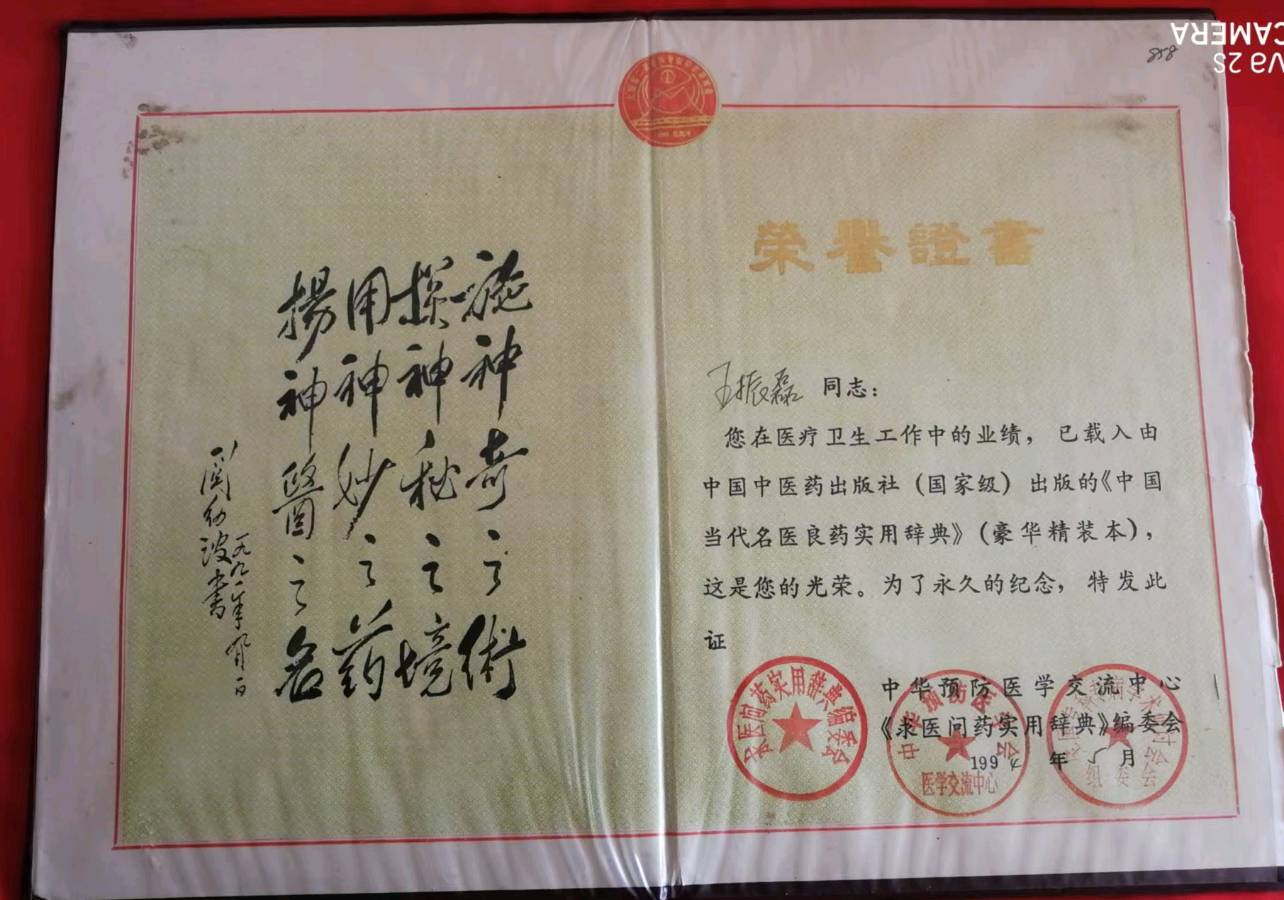 858
榮譽證書
王振磊 同志：
您在医疗卫生工作中的业绩，已载入由
中国中医药出版社（国家级）出版的《中国
当代名医良药实用辞典》（豪华精装本），
这是您的光荣。为了永久的纪念，特发此
证
中华预防医学交流中心
《求医问药实用辞典》编委会
1994年5月
求医问药实用辞典编委会
中华预防医学会
医学交流中心
组委会
施神奇之術
探神秘之境
用神妙之药
揚神醫之名
関幼波书
一九九一年
CAMERA